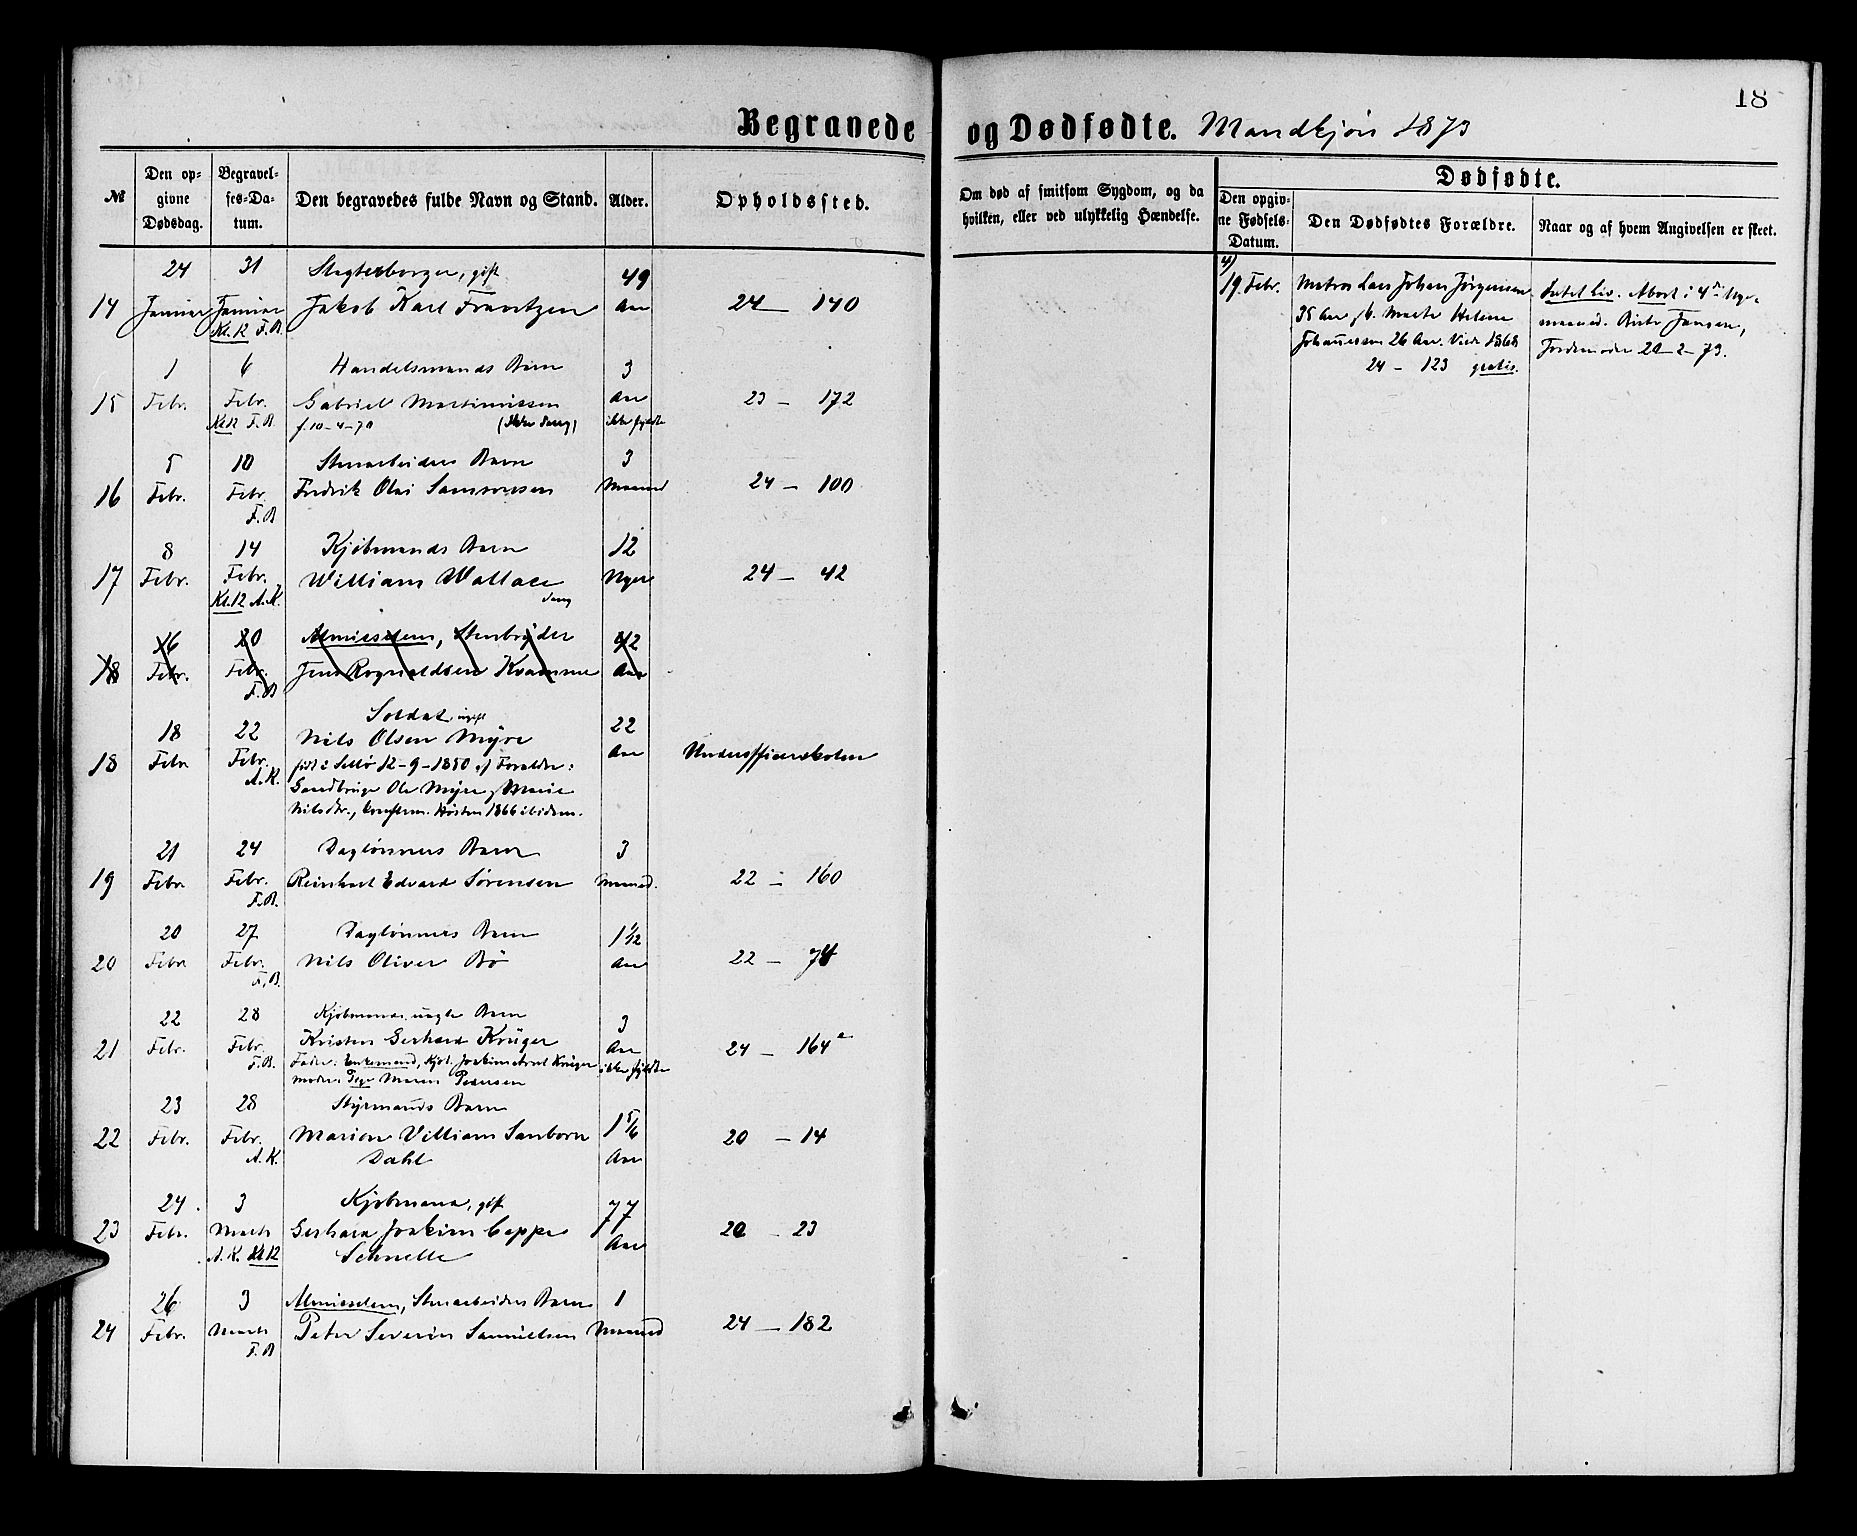 18
Begravede og Dødfødte. Mandkjøn 1873
№
Den opgivne Dødsdag.
Begravelses-Datum.
Den begravedes fulde Navn og Stand.
Alder.
Opholdssted.
Om død af smitsom Sygdom, og da hvilken, eller ved ulykkelig Hændelse.
Dødfødte.
Den opgivne Fødsels-Datum.
Den Dødfødtes Forældre.
Naar og af hvem Angivelsen er skeet.
24 31 Slagterborger, gift 49
14 Januar Januar Jakob Karl Frantzen Aar 24 — 140
Kl. 12 F.B.
4)
19. Febr. Matros Lars Johan Jørgensen
35 Aar, Marte Helene
Johannessen 26 Aar. Viede 1868
24 — 123 gratis.
Intet Liv. Abort i 4de
maaned. Jansen,
Jordemoder 20—2—73.
1 6 Handelsmands Barn 3
15 Febr. Febr. Gabriel Martinussen Aar 23 — 172
Kl 12 F.B. f. 10—4—70 ikke fyldte
5 10 Stenarbeiders Barn 3
16 Febr. Febr. Fredrik Olai Samsonsen Maaned 24 — 100
F.B
8 14 Kjøbmands Barn 12
17 Febr. Febr. William Wallace Uger 24 — 42
Kl. 12 A.K.
16 20 Almisselem, Stenbryder 42
18 Febr. Febr. Jens Rognaldsen Kvamme Aar
F.B
Soldat, ugift
18 22 Nils Olsen Myre 22
18 Febr Febr. født i Sellø 12—9—1850 af Foraldre: Aar Underofficerskolen
A.K. Gaardbruger Ole Myre Marie
Nilsdtr., konfirm. Høsten 1866 ibidem.
21 24 Daglønners Barn 3
19 Febr. Febr. Reinhart Edvard Sørensen Maaned. 22 — 160
F.B.
20 27 Daglønners Barn 1 1/12
20 Febr Febr. Nils Oliver Bø Aar 22 — 74
F.B.
22 28 Kjøbmands uægte Barn 3
21 Febr. Febr. Kristen Gerhard Krüger Aar 24 — 164 a
F.B. Fader: Enkemand, Kjøb. Joakim Krüger ikke fyldte
Moder: Pige Maren Pedersen
23 28 Styrmands Barn 1 5/6
22 Febr. Febr. Marion Villiam Sanborn 20 — 14
A.K. Dahl Aar
24 3 Kjøbmand, gift 77
23 Febr. Marts Gerhard Joakim Ceppe 20 — 23
A.K. Kl 12 Schnelle Aar
26 3 Almisselem, Stenarbeiders Barn 1
24 Febr. Marts Peter Severin Samuelsen Maaned 24 — 182
F.B